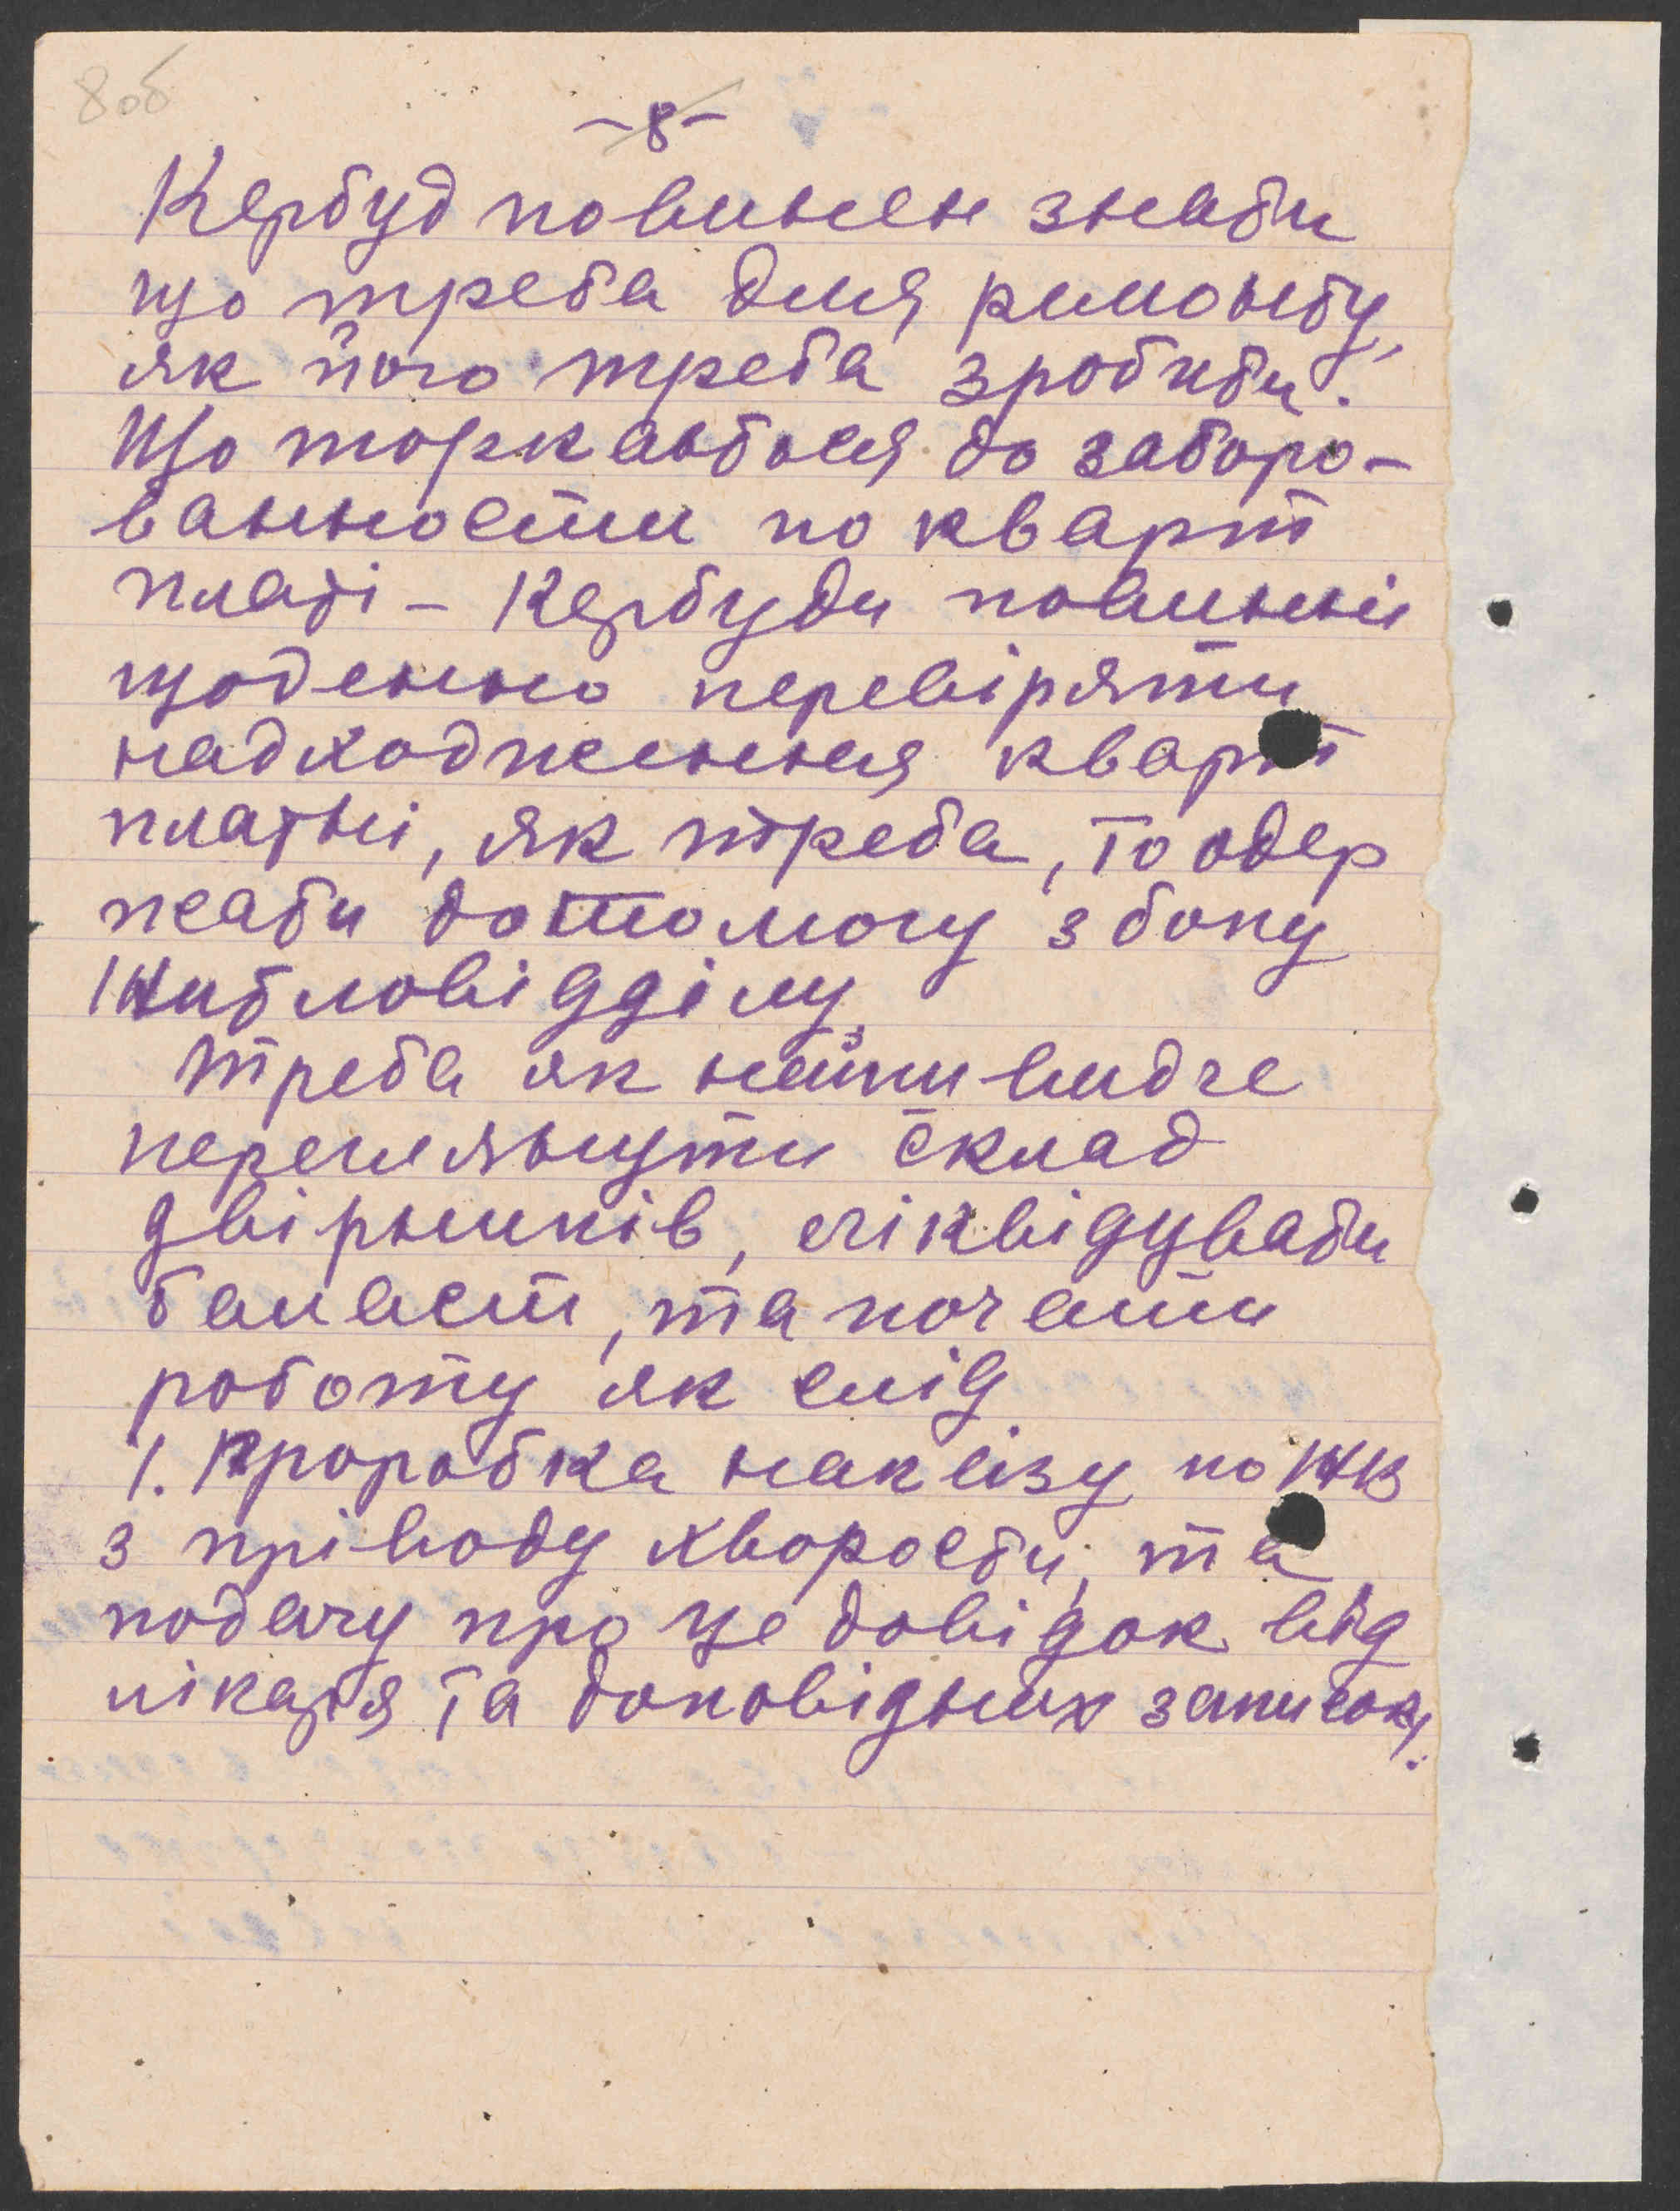 8об
-8-
Кербуд повинен знати
що треба для римонту,
як його треба зробити.
Що торкається до заборо-
ванности по кварт
платі - Кербуди повинні
щоденно перевіряти
надходження кварт
платні, як треба, то одер
жати допомогу з боку
Житловідділу.
Треба як найшвидче
переглянути склад
двірників, ліквідувати
баласт, та почати
роботу як слід
1. Проробка наказу по ЖВ
з пріводу хворости, та
подачу про це довідок від
лікаря та доповідних записок.